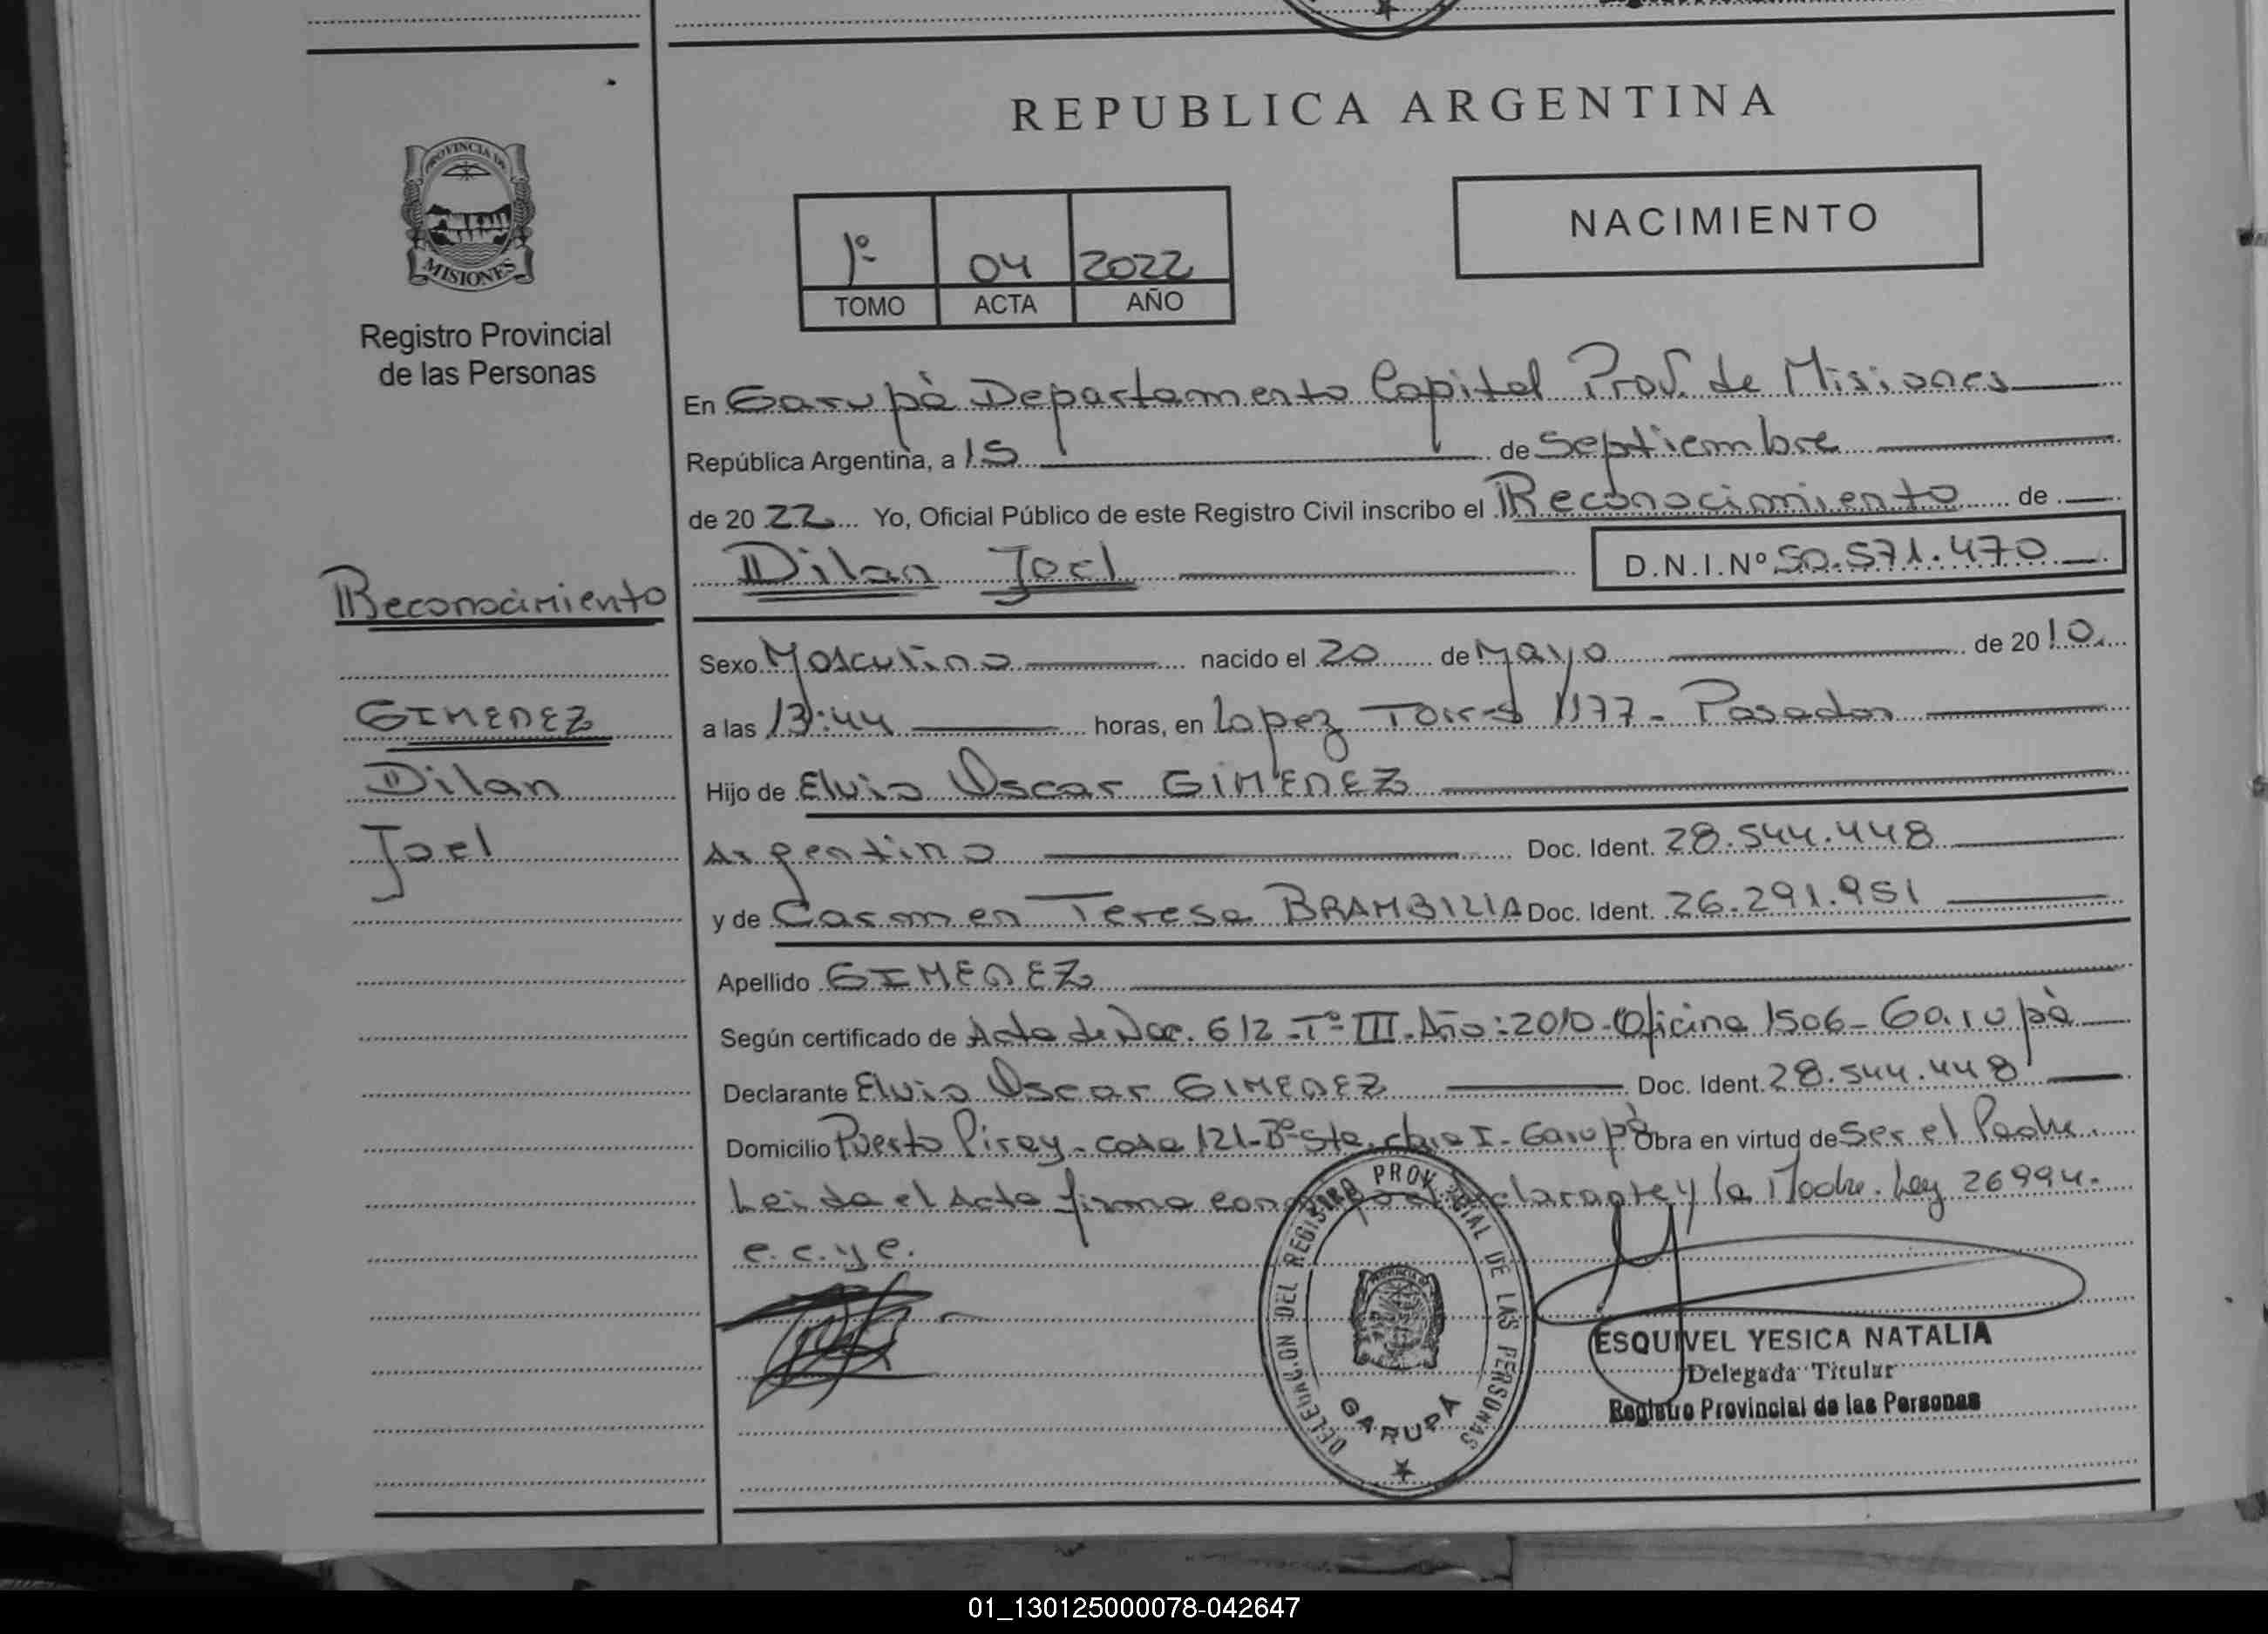 REPUBLICA ARGENTINA
PROVINCIA DE
MISIONES
Registro Provincial
de las Personas
NACIMIENTO
1º 04 2022
TOMO ACTA AÑO
En Garupà Departamento Capital Prov. de Misiones
República Argentina, a 15 de Septiembre
de 20 22 Yo, Oficial Público de este Registro Civil inscribo el Reconocimiento de
Dilan Joel D.N.I.Nº 50.571.470
Reconocimiento
GIMENEZ
Dilan
Joel
Sexo Masculino nacido el 20 de Mayo de 2010
a las 13:44 horas, en Lopez Torres 1177 - Posadas
Hijo de Elvio Oscar GIMENEZ
Argentino Doc. Ident. 28.544.448
y de Carmen Teresa BRAMBILLA Doc. Ident. 26.291.951
Apellido GIMENEZ
Según certificado de Acta de Nac. 612 - Tº III - Año: 2010 - Oficina 1506 - Garupà
Declarante Elvio Oscar GIMENEZ Doc. Ident. 28.544.448
Domicilio Puerto Piray - casa 121 - Bº Sta. I - Garupà Obra en virtud de Ser el Padre.
Leida el Acta firma declarante y la Madre. Ley 26994.
e.c.y e.
DELEGACION DEL REGISTRO PROVINCIAL DE LAS PERSONAS
GARUPÁ
ESQUIVEL YESICA NATALIA
Delegada Titular
Registro Provincial de las Personas
01_130125000078-042647